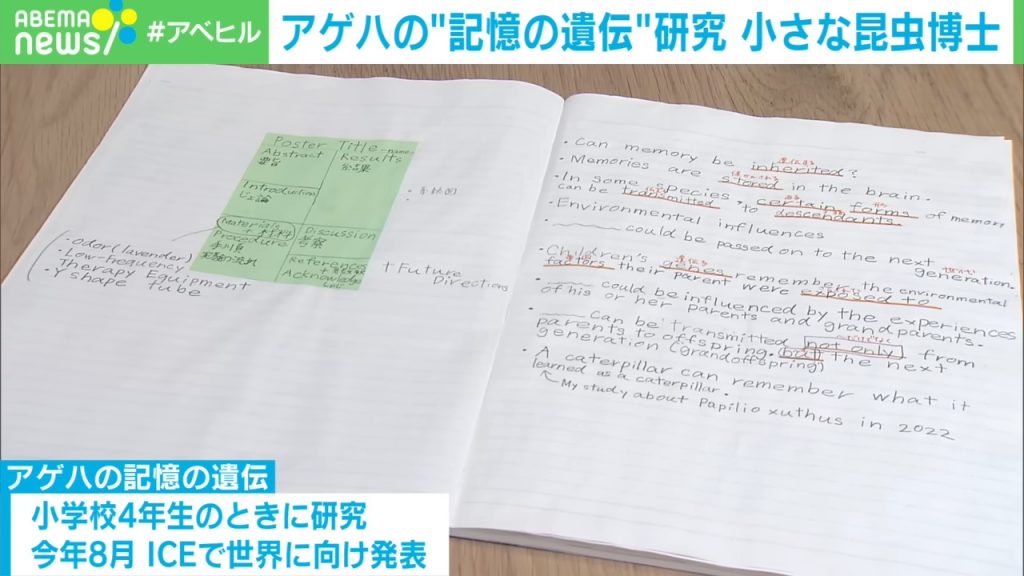 ABEMA
news
#アベヒル
アゲハの"記憶の遺伝"研究 小さな昆虫博士
Poster
Abstract
要旨
Introduction
じょ論
Materials
材料
Procedure
手順
実験の流れ
Title
name
Results
結果
Discussion
考察
References
Acknowledge
+ Future
Directions
・系統図
・odor (lavender)
・Low-frequency
Therapy Equipment
・Y shape tube
・Can memory be inherited?
遺伝する
・Memories are stored in the brain.
・In some species, certain forms of memory
can be transmitted to descendants.
・Environmental influences
could be passed on to the next
generation.
世代
・Children's genes remember the environmental
遺伝子
factors their parent were exposed to
・could be influenced by the experiences
of his or her parents and grandparents.
・can be transmitted not only from
parents to offspring, but the next
generation (grandoffspring)
・A caterpillar can remember what it
learned as a caterpillar.
My study about Papilio xuthus in 2022
アゲハの記憶の遺伝
小学校4年生のときに研究
今年8月 ICEで世界に向け発表